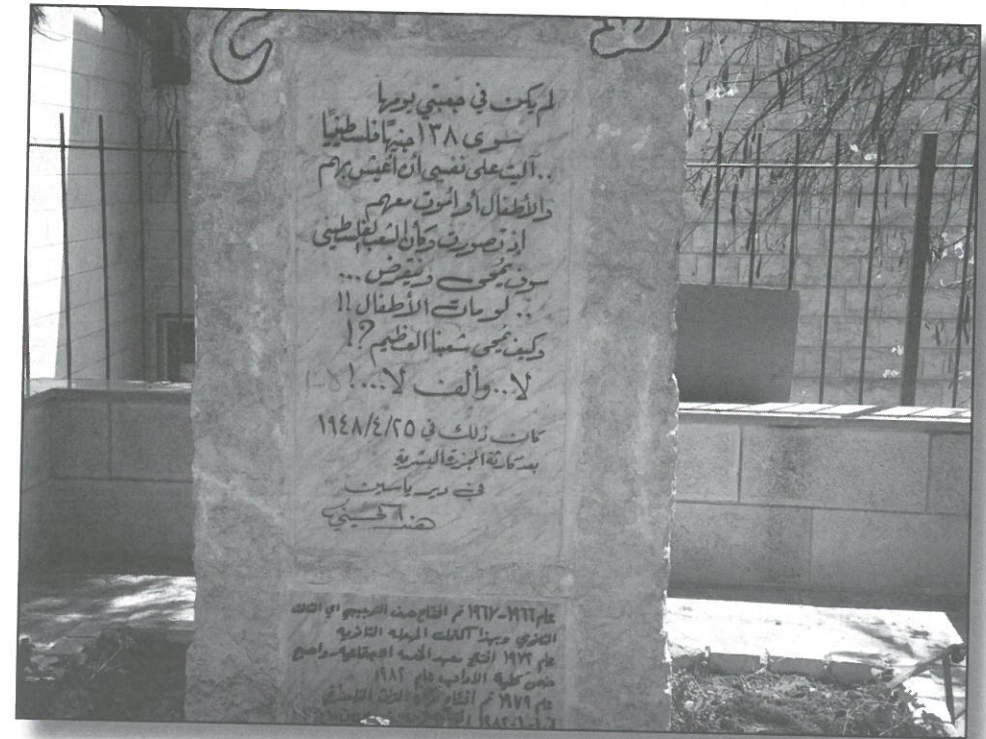 لم يكن في جعبتي يومها
سوى ١٣٨ جنيهًا فلسطينيًا
..آليت على نفسي أن أعيش بهم
والأطفال أو أموت معهم
إذ تصورت وكأن الشعب الفلسطيني
سوف يُمحى وينقرض...
..لو مات الأطفال!!
وكيف يُمحى شعبنا العظيم؟!
لا..وألف لا...!
كان ذلك في ١٩٤٨/٤/٢٥
بعد كارثة المجزرة البشرية
في دير ياسين
هند الحسيني
عام ١٩٦٦-١٩٦٧ تم افتتاح صف التوجيهي أي الثالث
الثانوي وبهذا المرحلة الثانوية
عام ١٩٧٢ افتتح معهد الخدمة الاجتماعية وأصبح
ضمن كلية الآداب عام ١٩٨٢
عام ١٩٧٩ تم افتتاح